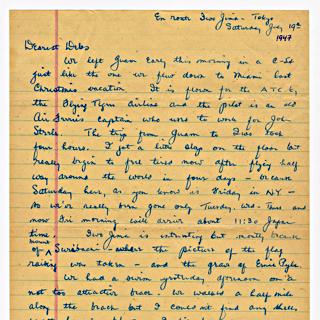 En route Iwo Jima - Tokyo
Saturday July 19th
1947
Dearest Debs
We left Guam early this morning in a C-54
just like the one we flew down to Miami last
Christmas vacation. It is flown for the ATC by
the Flying Tiger Airline and the pilot is an old
Air Ferries Captain who used to work for John
Steele. The trip from Guam to Iwo took
four hours. I got a little sleep on the floor but
really begin to feel tired now after flying half
way around the world in four days - because
Saturday here, as you know is Friday in NY -
So we're really been gone only Tuesday, Wed. Thurs. and
now Fri morning will arrive about 11:30 Japan
time. Iwo Jima is interesting but mostly because
of Mount Suribachi where the picture of the flag
raising was taken - and the grave of Ernie Pyle.
We had a swim yesterday afternoon on a
not too attractive beach. We walked a half mile
along the beach but I could not find any shells